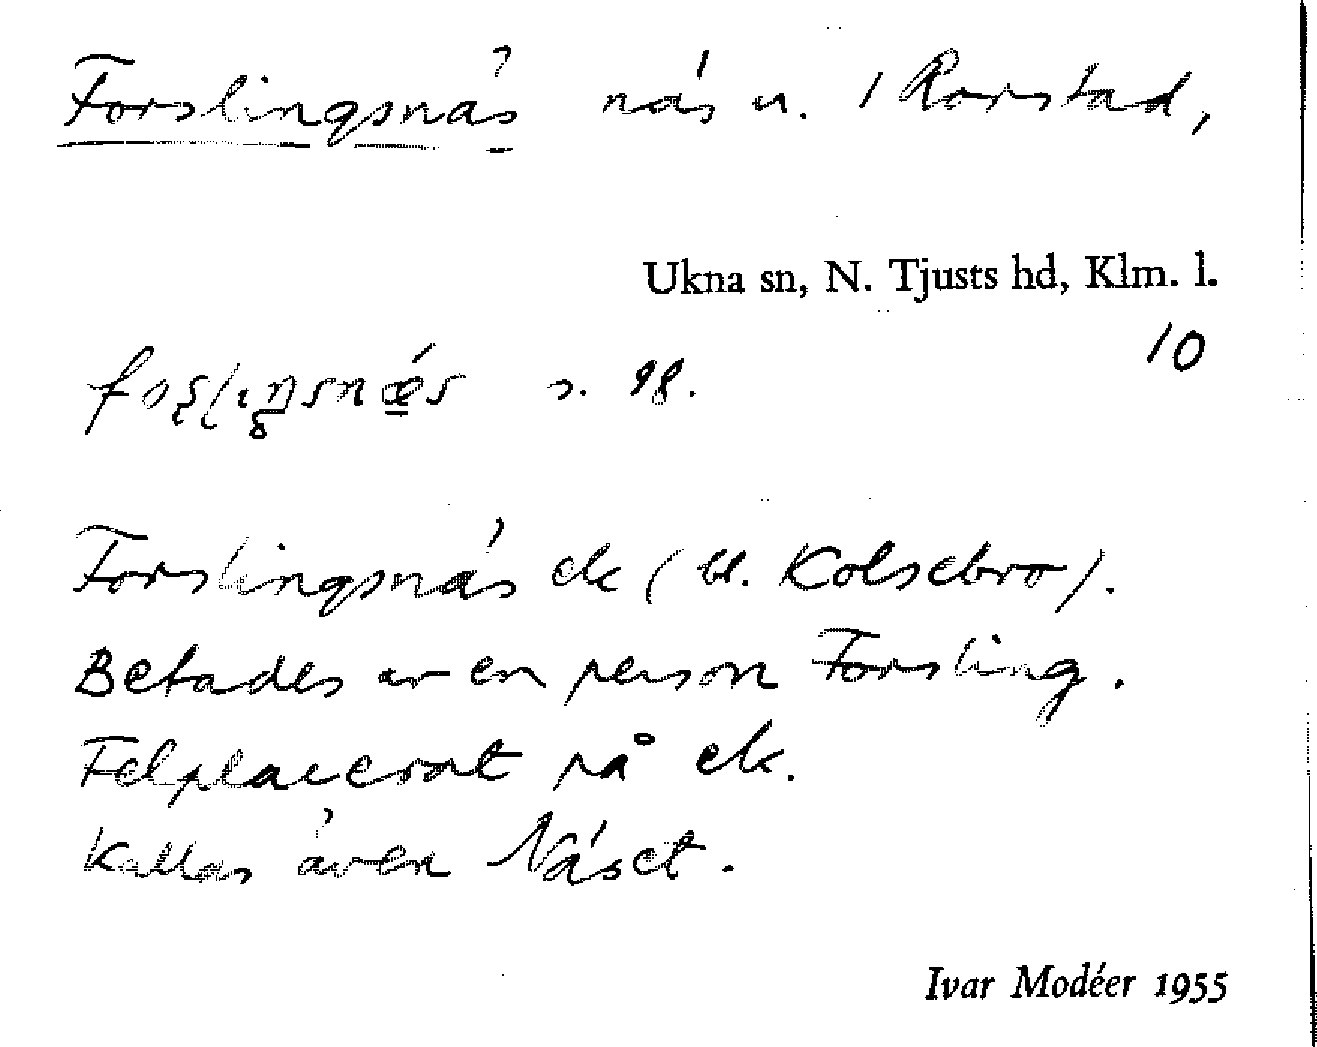 Forslingsnäs näs n. / Rorstad,
Ukna sn, N. Tjusts hd, Klm. l.
10
s. 98.
Forslingsnäs ek (bl. Kolsebro).
Betades av en person Forsling.
Felplacerat på ek.
Kallas även Näset.
Ivar Modéer 1955